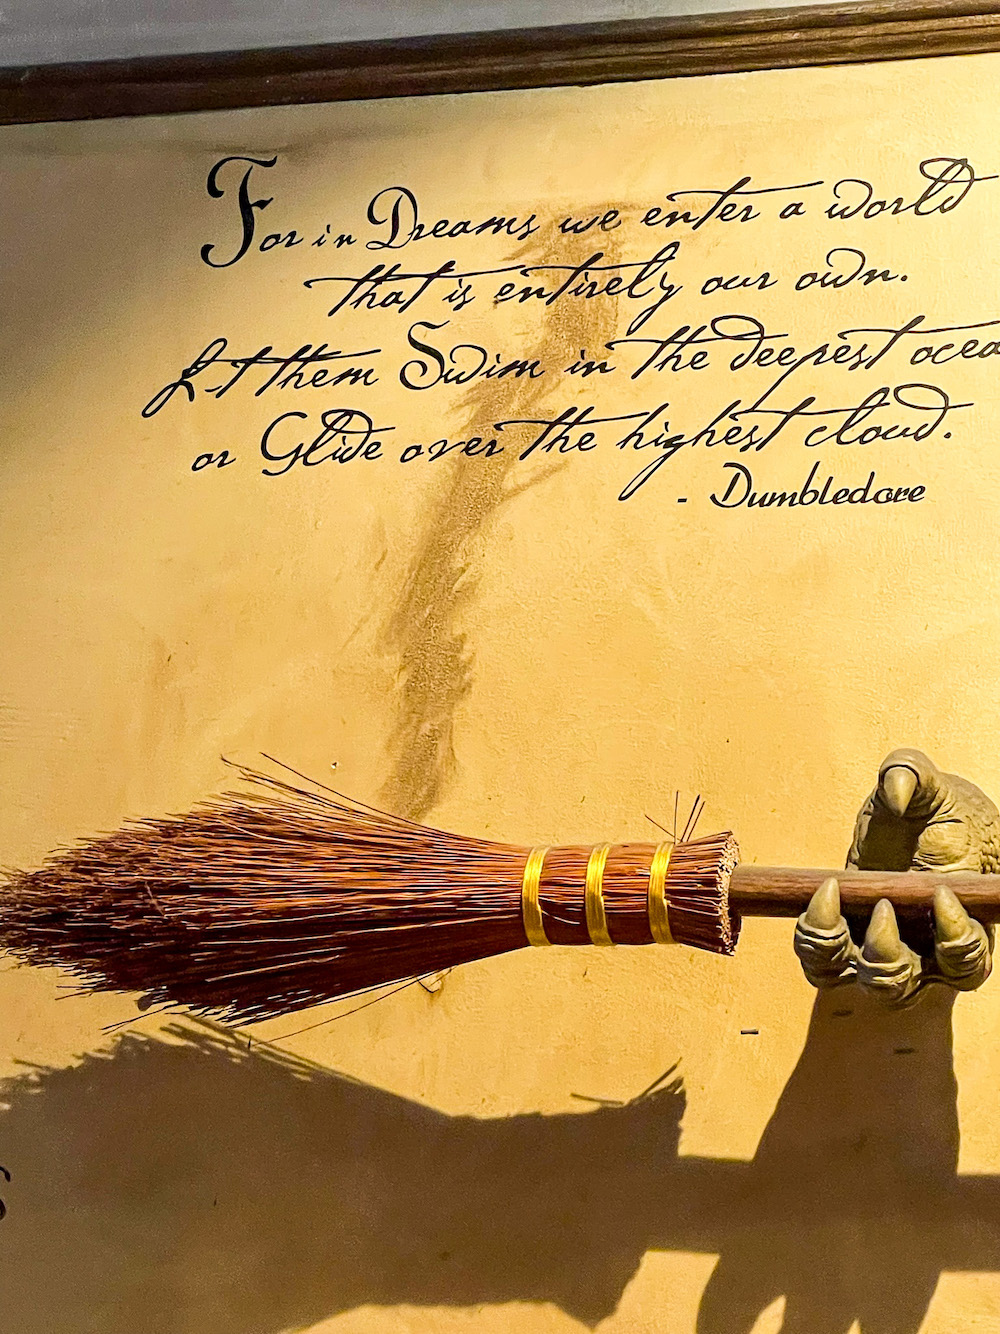 For in Dreams we enter a world
that is entirely our own.
Let them Swim in the deepest
or Glide over the highest cloud.
- Dumbledore